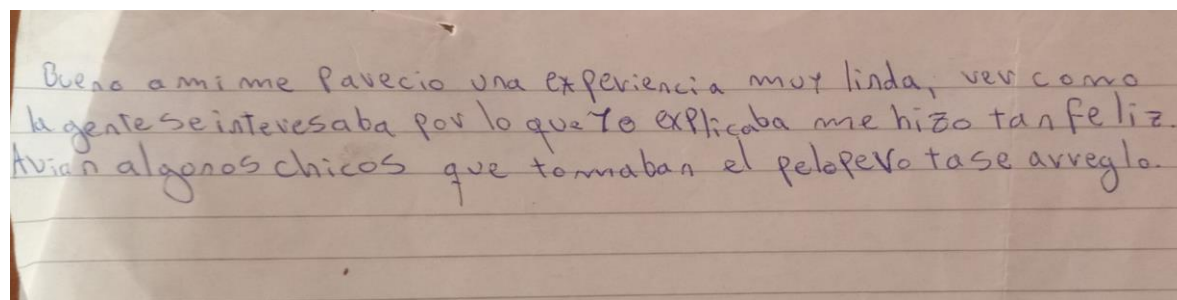 Bueno a mi me Parecio una experiencia muy linda, ver como
la gente se interesaba por lo que Yo explicaba me hizo tan feliz.
Avian algonos chicos que tomaban el pelo pero tase arreglo.